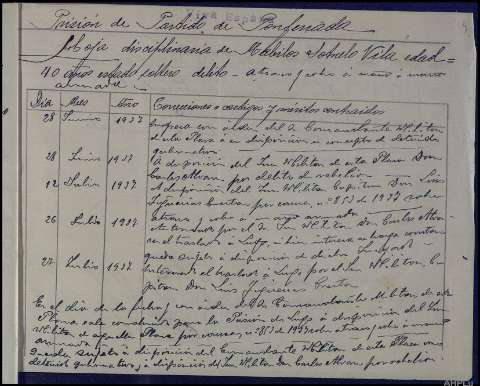 Viva España
Prision de Partido de Ponferrada
Hoja disciplinaria de Sobrelo Vila edad=
40 años estado soltero delito - atraco y robo a mano
armada.
Dia Mes Año Correcciones o castigos y méritos contraidos
28 Junio 1937 Ingresa con orden del Sr Comandante Militar
de esta Plaza a su disposición en concepto de detenido
gubernativo.
28 Junio 1937 A disposición del Juez Militar de esta Plaza Don
Carlos Alvarez por delito de rebelión
12 Julio 1937 A disposición del Juez Militar Capitan Don Luis
Figueiras por causa, nº 853 de 1937 sobre
atraco y robo a mano armada
26 Julio 1937 por el Sr Juez Militar Don Carlos Alva-
el traslado a Lugo,
queda sujeto a disposición de dicho Juzgado
27 Julio 1937 el traslado a Lugo por el Juez Militar, Ca-
pitan Don Luis Figueiras
En el dia de la fecha, con orden del Sr Comandante Militar de esta
Plaza sale conducido para la Prision de Lugo a disposición del Juez
Militar de aquella Plaza por causa, nº 853 de 1937 sobre atraco y robo a mano
armada
Queda sujeto a disposición del Comandante Militar de esta Plaza como
detenido gubernativo, y a disposición del Juez Militar Don Carlos Alvarez por rebelión.
AHPLu